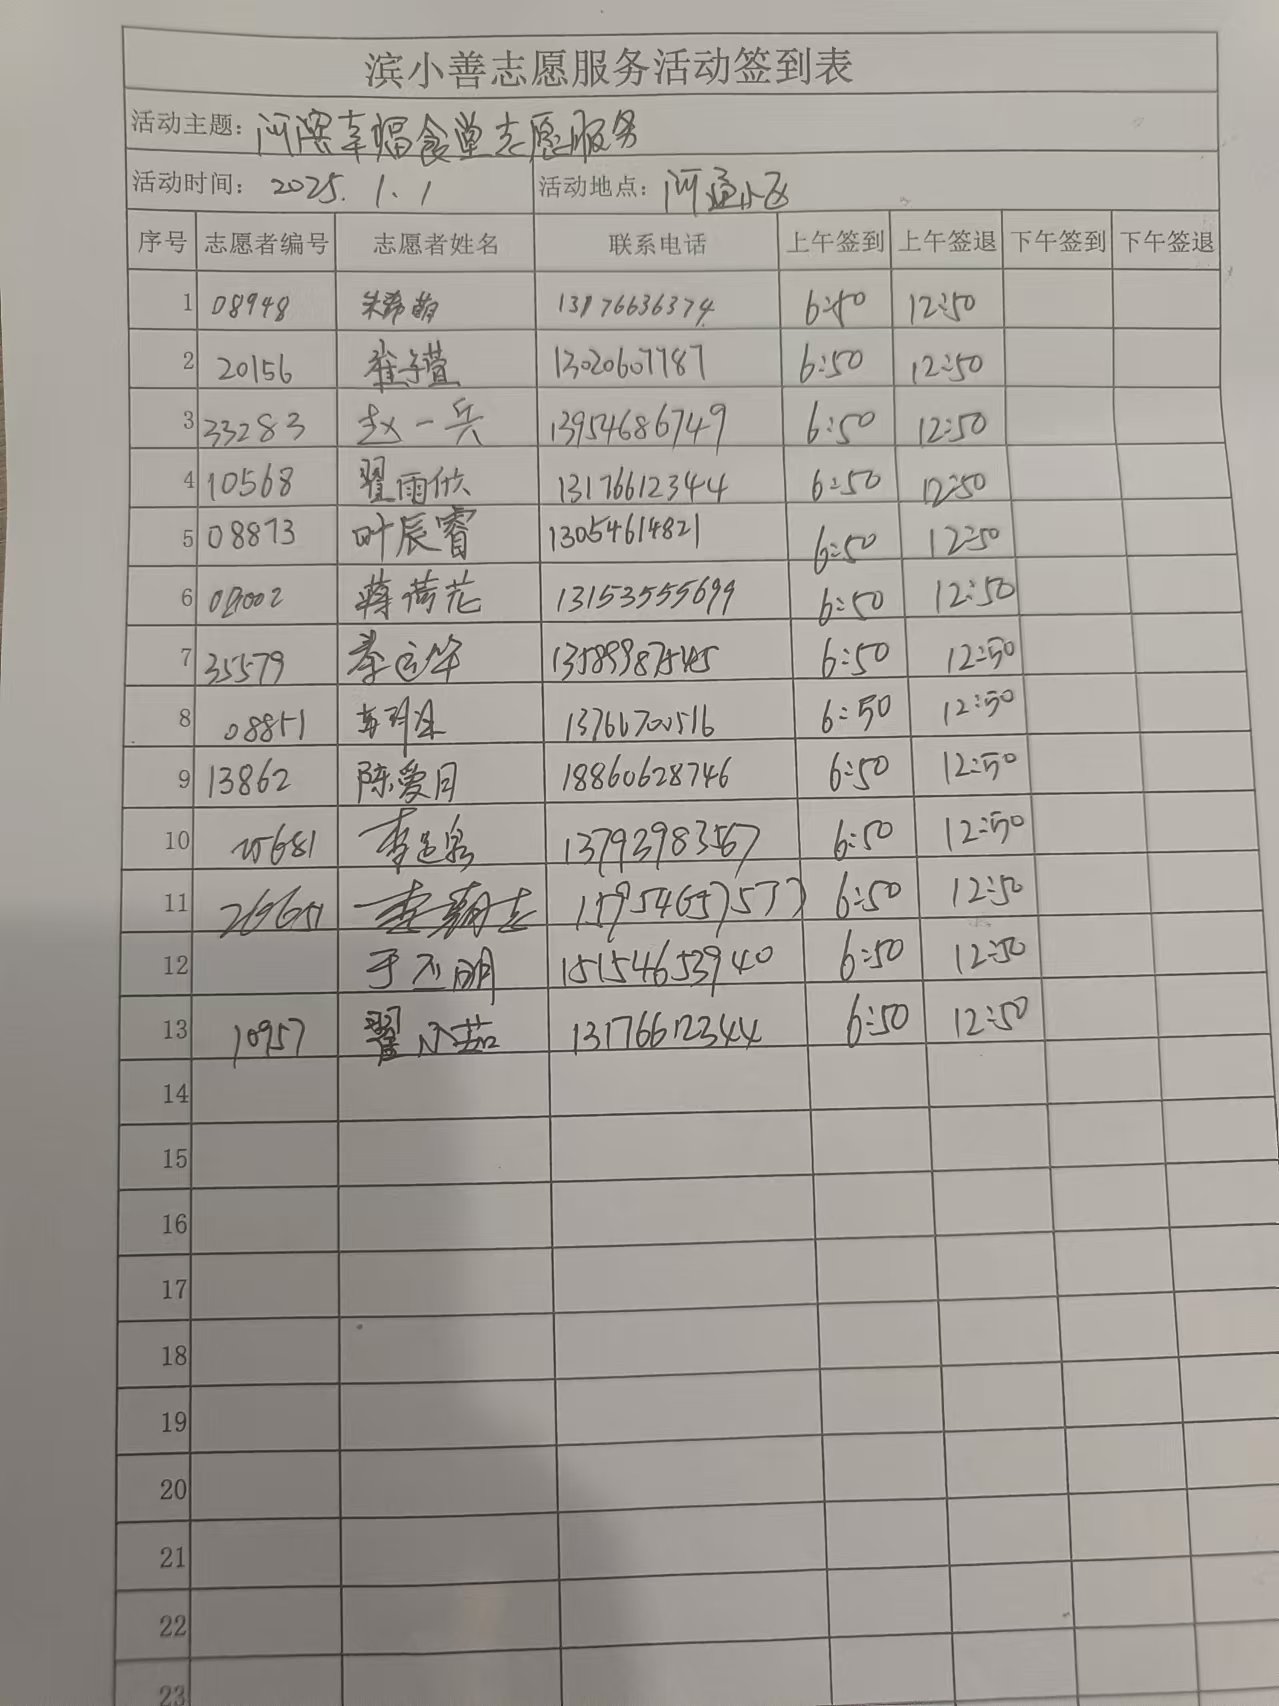 滨小善志愿服务活动签到表
活动主题: 河滨幸福食堂志愿服务
活动时间: 2025.1.1 活动地点: 河通小区
序号 志愿者编号 志愿者姓名 联系电话 上午签到 上午签退 下午签到 下午签退
1 08948 朱希萌 13176636374 6:50 12:50
2 20156 崔子萱 13020607787 6:50 12:50
3 33283 赵一兵 13954686749 6:50 12:50
4 10568 翟雨欣 13176612344 6:50 12:50
5 08873 叶辰睿 13054614821 6:50 12:50
6 蒋荷花 13153555699 6:50 12:50
7 35579 13589987545 6:50 12:50
8 08851 13761700516 6:50 12:50
9 13862 陈爱月 18860628746 6:50 12:50
10 25681 13793983567 6:50 12:50
11 6:50 12:50
12 15154653940 6:50 12:50
13 10957 翟小茹 13176612344 6:50 12:50
14
15
16
17
18
19
20
21
22
23